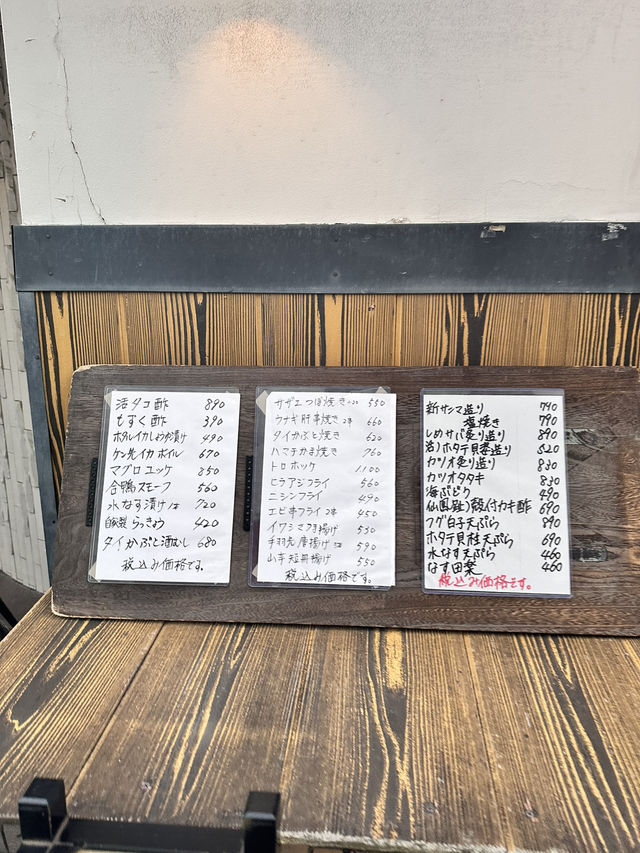 活タコ酢 890
もずく酢 390
ホタルイカしょうゆ漬け 490
ケン先イカボイル 670
マグロユッケ 850
合鴨スモーク 560
水なす漬け 1ヶ 720
自家製らっきょう 420
タイかぶと酒むし 680
税込み価格です。
サザエつぼ焼き 550
ウナギ肝串焼き 2本 660
タイかぶと焼き 620
ハマチかま焼き 760
トロホッケ 1100
ヒラアジフライ 560
ニシンフライ 490
エビ串フライ 2本 450
イワシ 揚げ 550
手羽先唐揚げ 590
山芋短冊揚げ 550
税込み価格です。
新サンマ造り 790
塩焼き 790
しめサバ炙り造り 890
活ホタテ貝 造り 520
カツオ炙り造り 830
カツオタタキ 830
海ぶどう 490
仙鳳趾 殻付カキ酢 690
フグ白子天ぷら 890
ホタテ貝柱天ぷら 690
水なす天ぷら 460
なす田楽 460
税込み価格です。